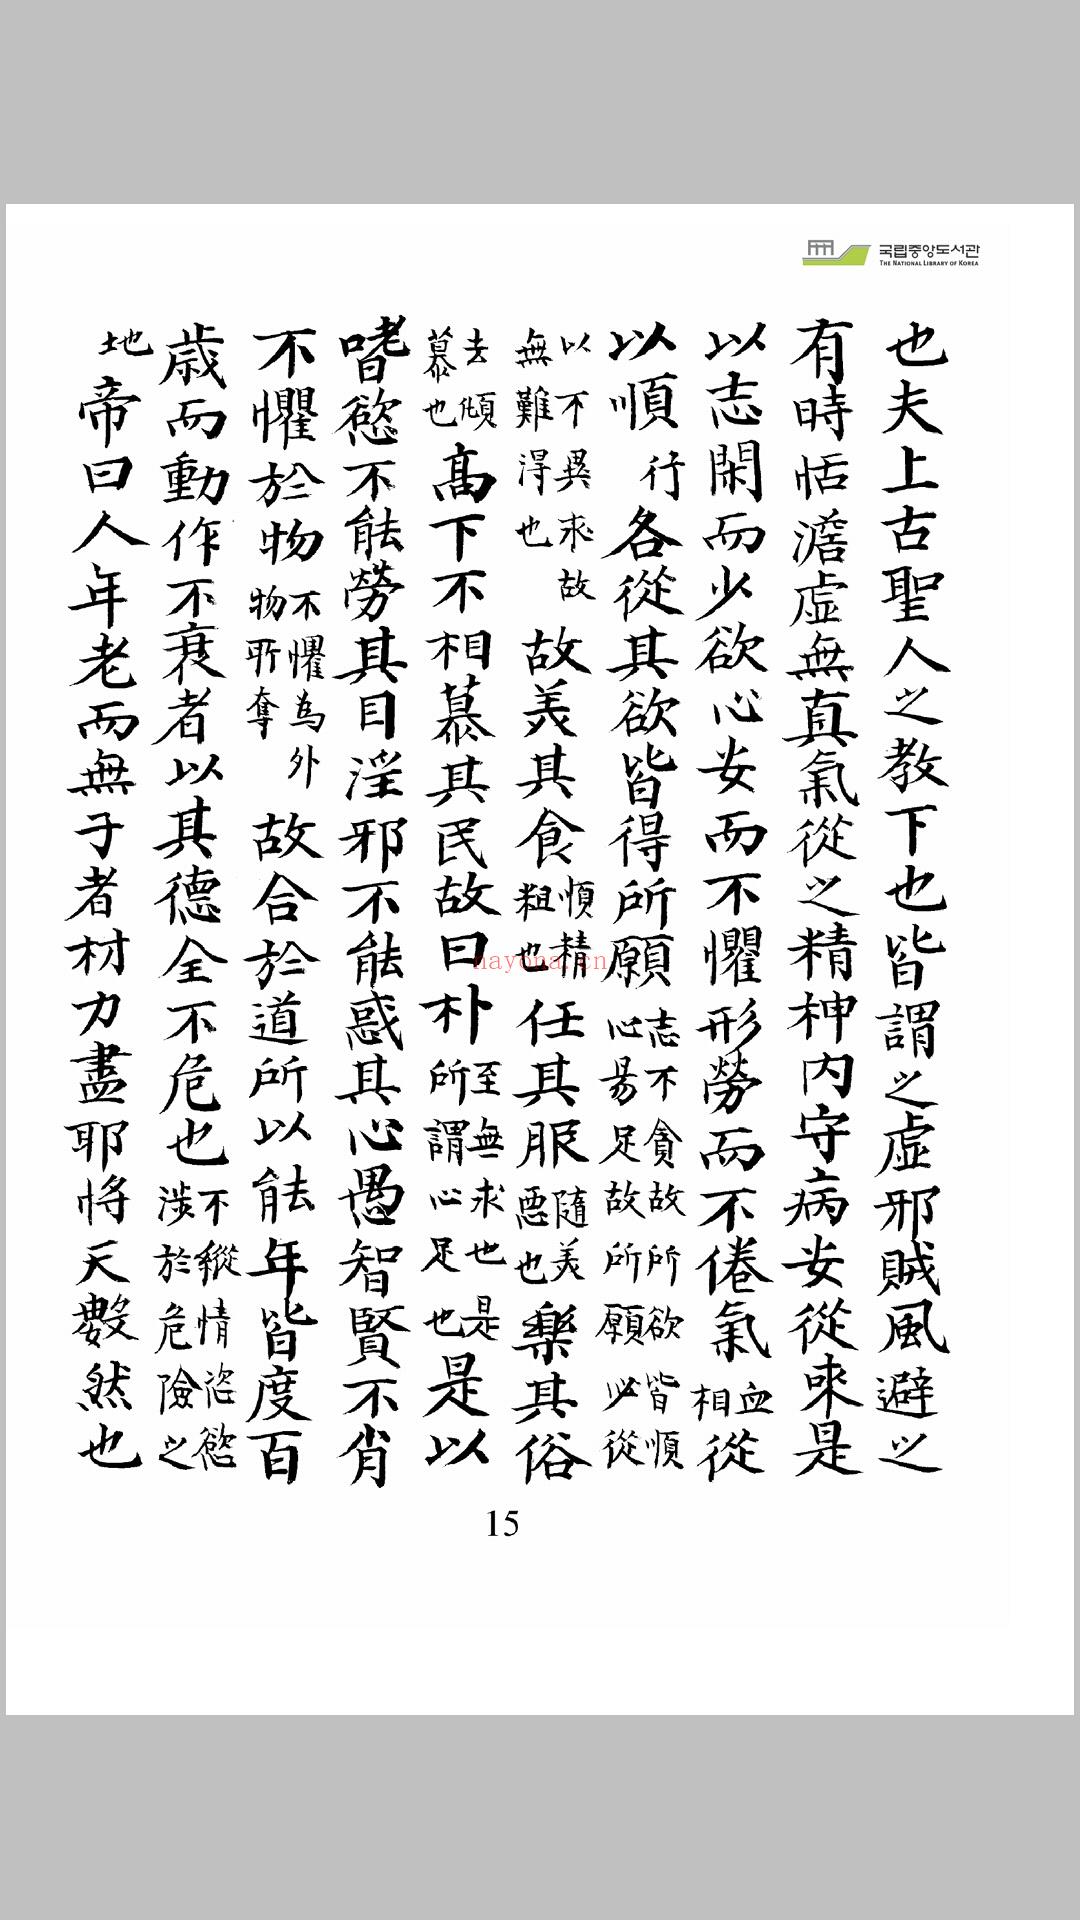 국립중앙도서관
THE NATIONAL LIBRARY OF KOREA
也夫上古聖人之教下也皆謂之虛邪賊風避之
有時恬澹虛無真氣從之精神內守病安從來是
以志閑而少欲心安而不懼形勞而不倦氣血相從
以順行各從其欲皆得所願志不貪故所欲皆順心易足故所願必從
以不異求故無難得也故美其食順精粗也任其服隨美惡也樂其俗
去傾慕也高下不相慕其民故曰朴至無求也是所謂心足也是以
嗜慾不能勞其目淫邪不能惑其心愚智賢不肖
不懼於物不懼為外物所奪故合於道所以能年皆度百
歲而動作不衰者以其德全不危也不縱情恣慾涉於危險之
地帝曰人年老而無子者材力盡耶將天數然也
nayona.cn
15